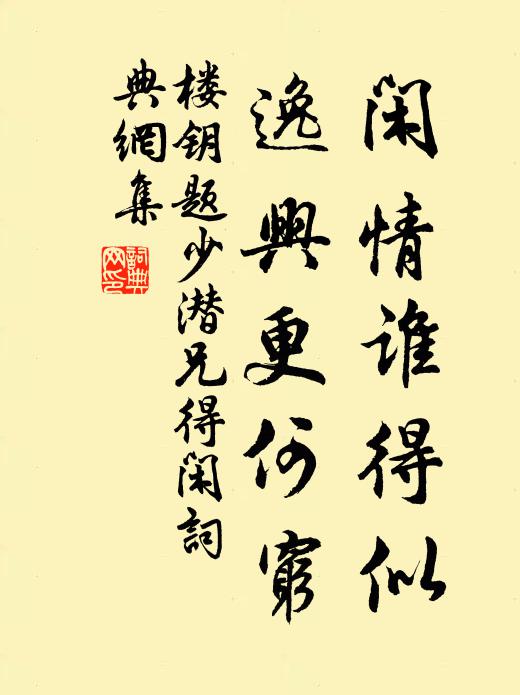 闲情谁得似
逸興更何窮
楼钥题少潜兄得闲詞
典網集
詞典
网印